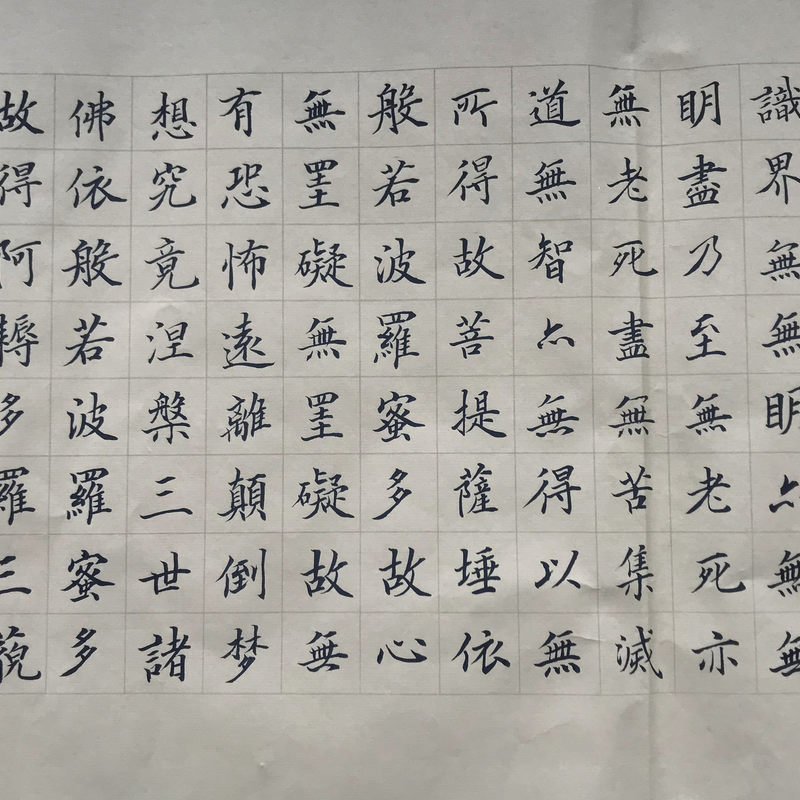 識界無無眀亦無無
眀盡乃至無老死亦
無老死盡無苦集滅
道無智亦無得以無
所得故菩提薩埵依
般若波羅蜜多故心
無罣礙無罣礙故無
有恐怖遠離顛倒梦
想究竟涅槃三世諸
佛依般若波羅蜜多
故得阿耨多羅三藐